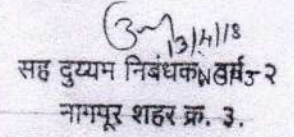 3/4/18
सह दुय्यम निबंधक वर्ग-२
नागपूर शहर क्र. ३.